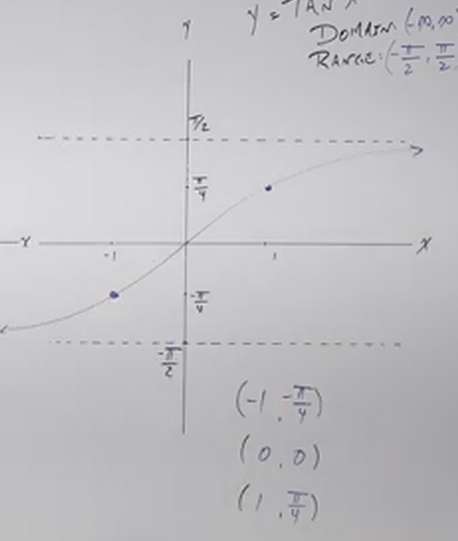 Y
Y = TAN
DOMAIN: (-∞, ∞
RANGE: (-π/2, π/2
π/2
π/4
-X
-1
1
X
-π/4
-π/2
(-1, -π/4)
(0, 0)
(1, π/4)